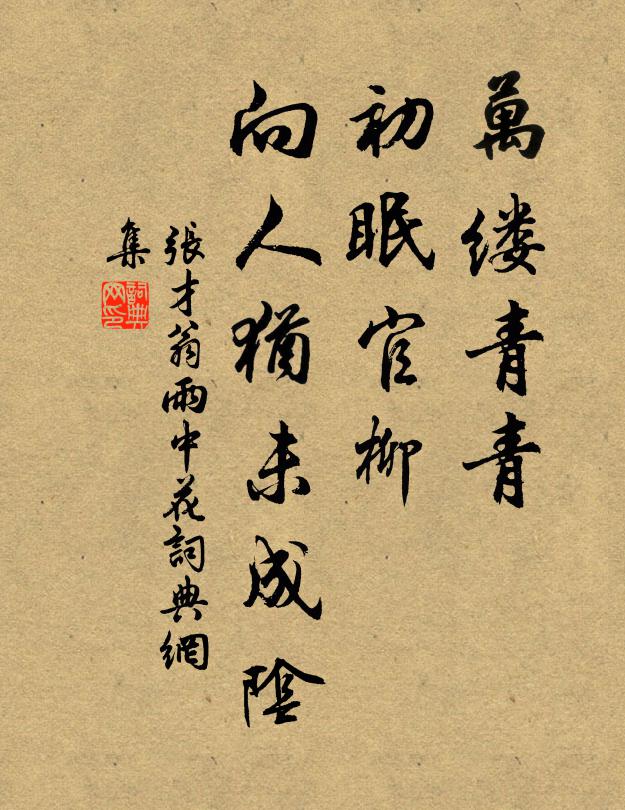 萬缕青青
初眠官柳
向人猶未成陰
張才翁雨中花詞典網
集
詞典
网印